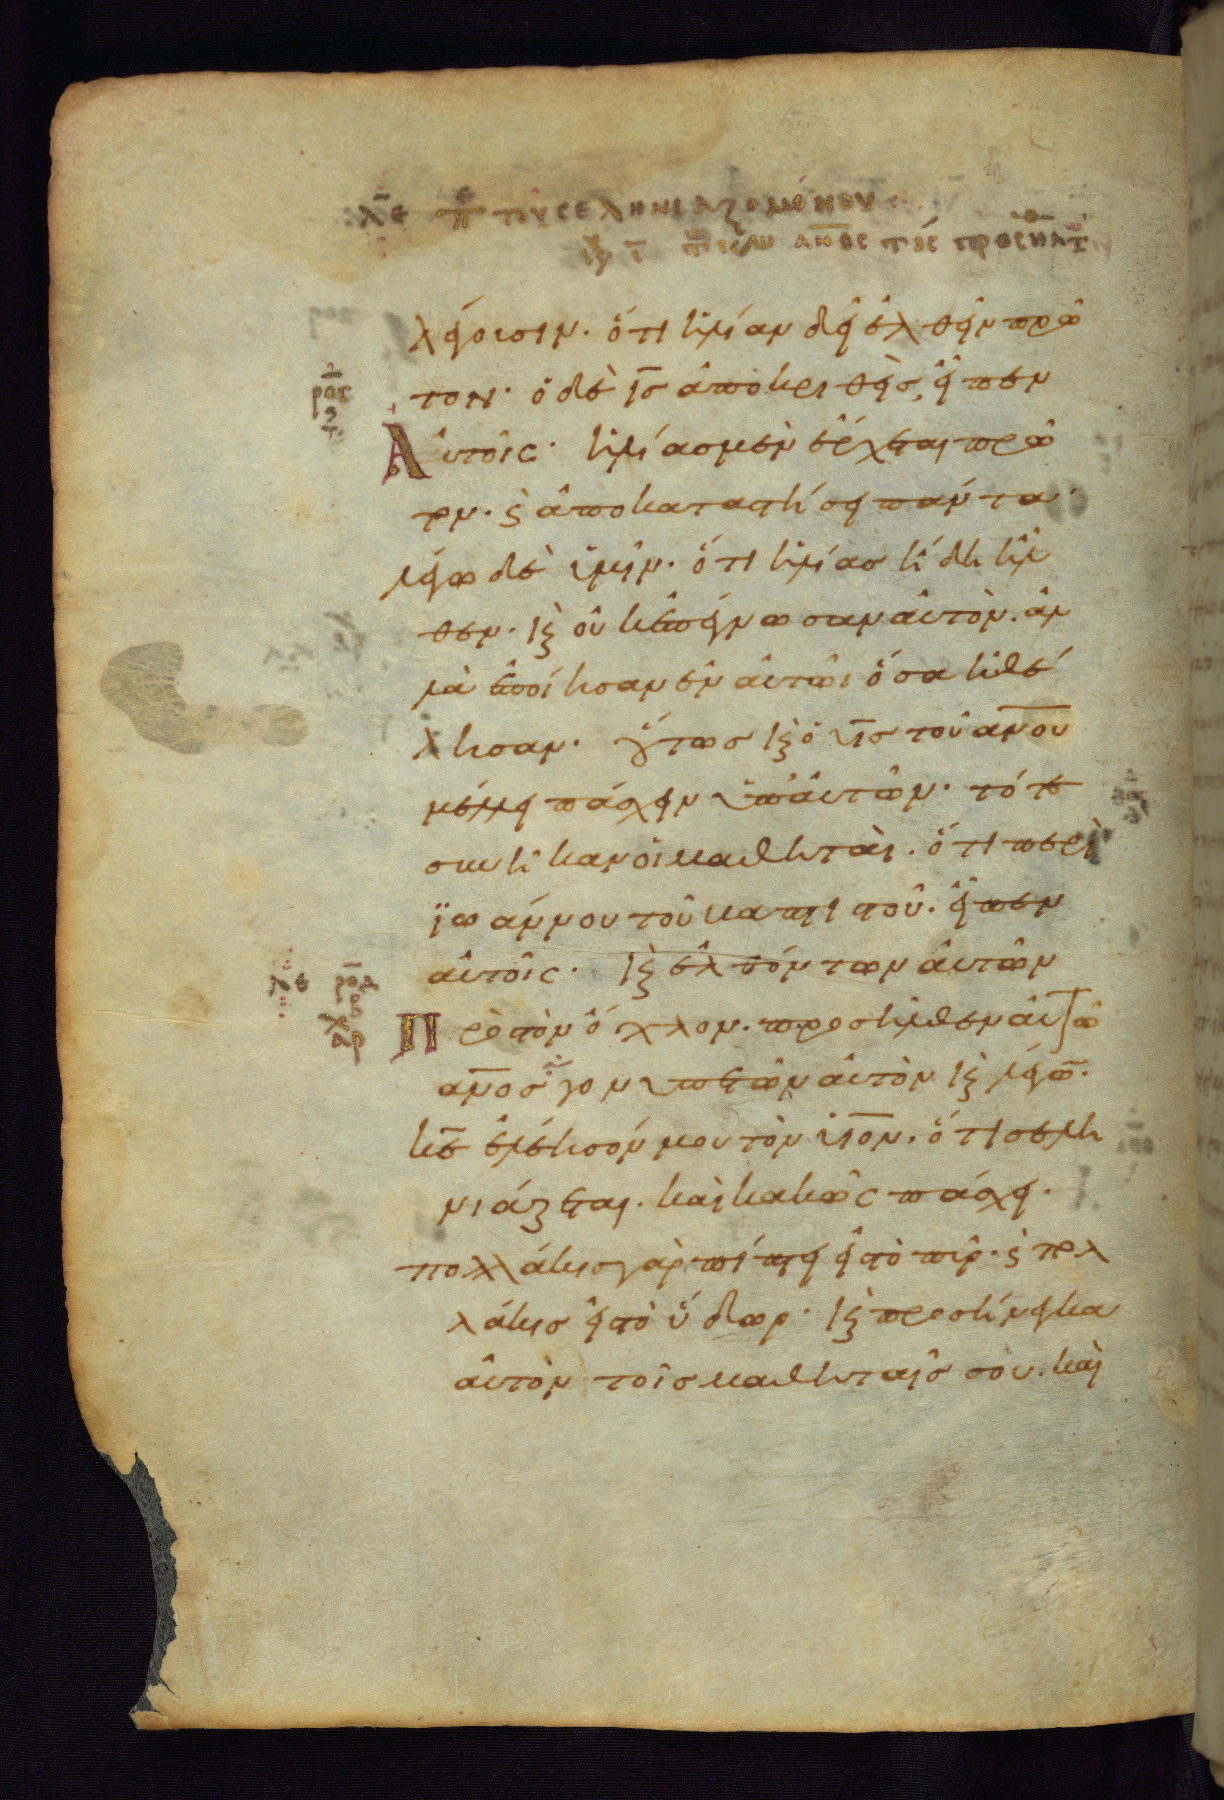 λε π τοῦ σεληνιαζομένου
ανος τις προσηλθ
λέγουσιν. ὅτι ἠλίαν δεῖ ἐλθεῖν πρῶ
τον. ὁ δὲ ις ἀποκριθεὶς, εἶπεν
Αὐτοῖς. ἠλίας μὲν ἔρχεται πρῶ
τον. ϛ ἀποκαταστήσει πάντα.
λέγω δὲ ὑμῖν. ὅτι ἠλίας ἤδη ἦλ
θεν. ϗ οὐκ ἐπέγνωσαν αὐτὸν. ἀλ
λὰ ἐποίησαν ἐν αὐτῶι ὅσα ἠθέ
λησαν. οὕτως ϗ ὁ υις τοῦ ανου
μέλλει πάσχειν ὑπ' αὐτῶν. τότε
συνῆκαν οἱ μαθηταὶ. ὅτι περὶ
ϊωάννου τοῦ βαπτιστοῦ. εἶπεν
αὐτοῖς. ϗ ἐλθόντων αὐτῶν
Πρὸς τὸν ὄχλον. προσῆλθεν αὐτῶ
ανος γονυπετῶν αὐτὸν ϗ λέγων.
κε ἐλέησόν μου τὸν υιον. ὅτι σελη
νιάζεται. καὶ κακῶς πάσχει.
πολλάκις γὰρ πίπτει εἰς τὸ πῦρ. ϛ πολ
λάκις εἰς τὸ ὕδωρ. ϗ προσήνεγκα
αὐτὸν τοῖς μαθηταῖς σου. καὶ
ροδ
λε
β
αρ